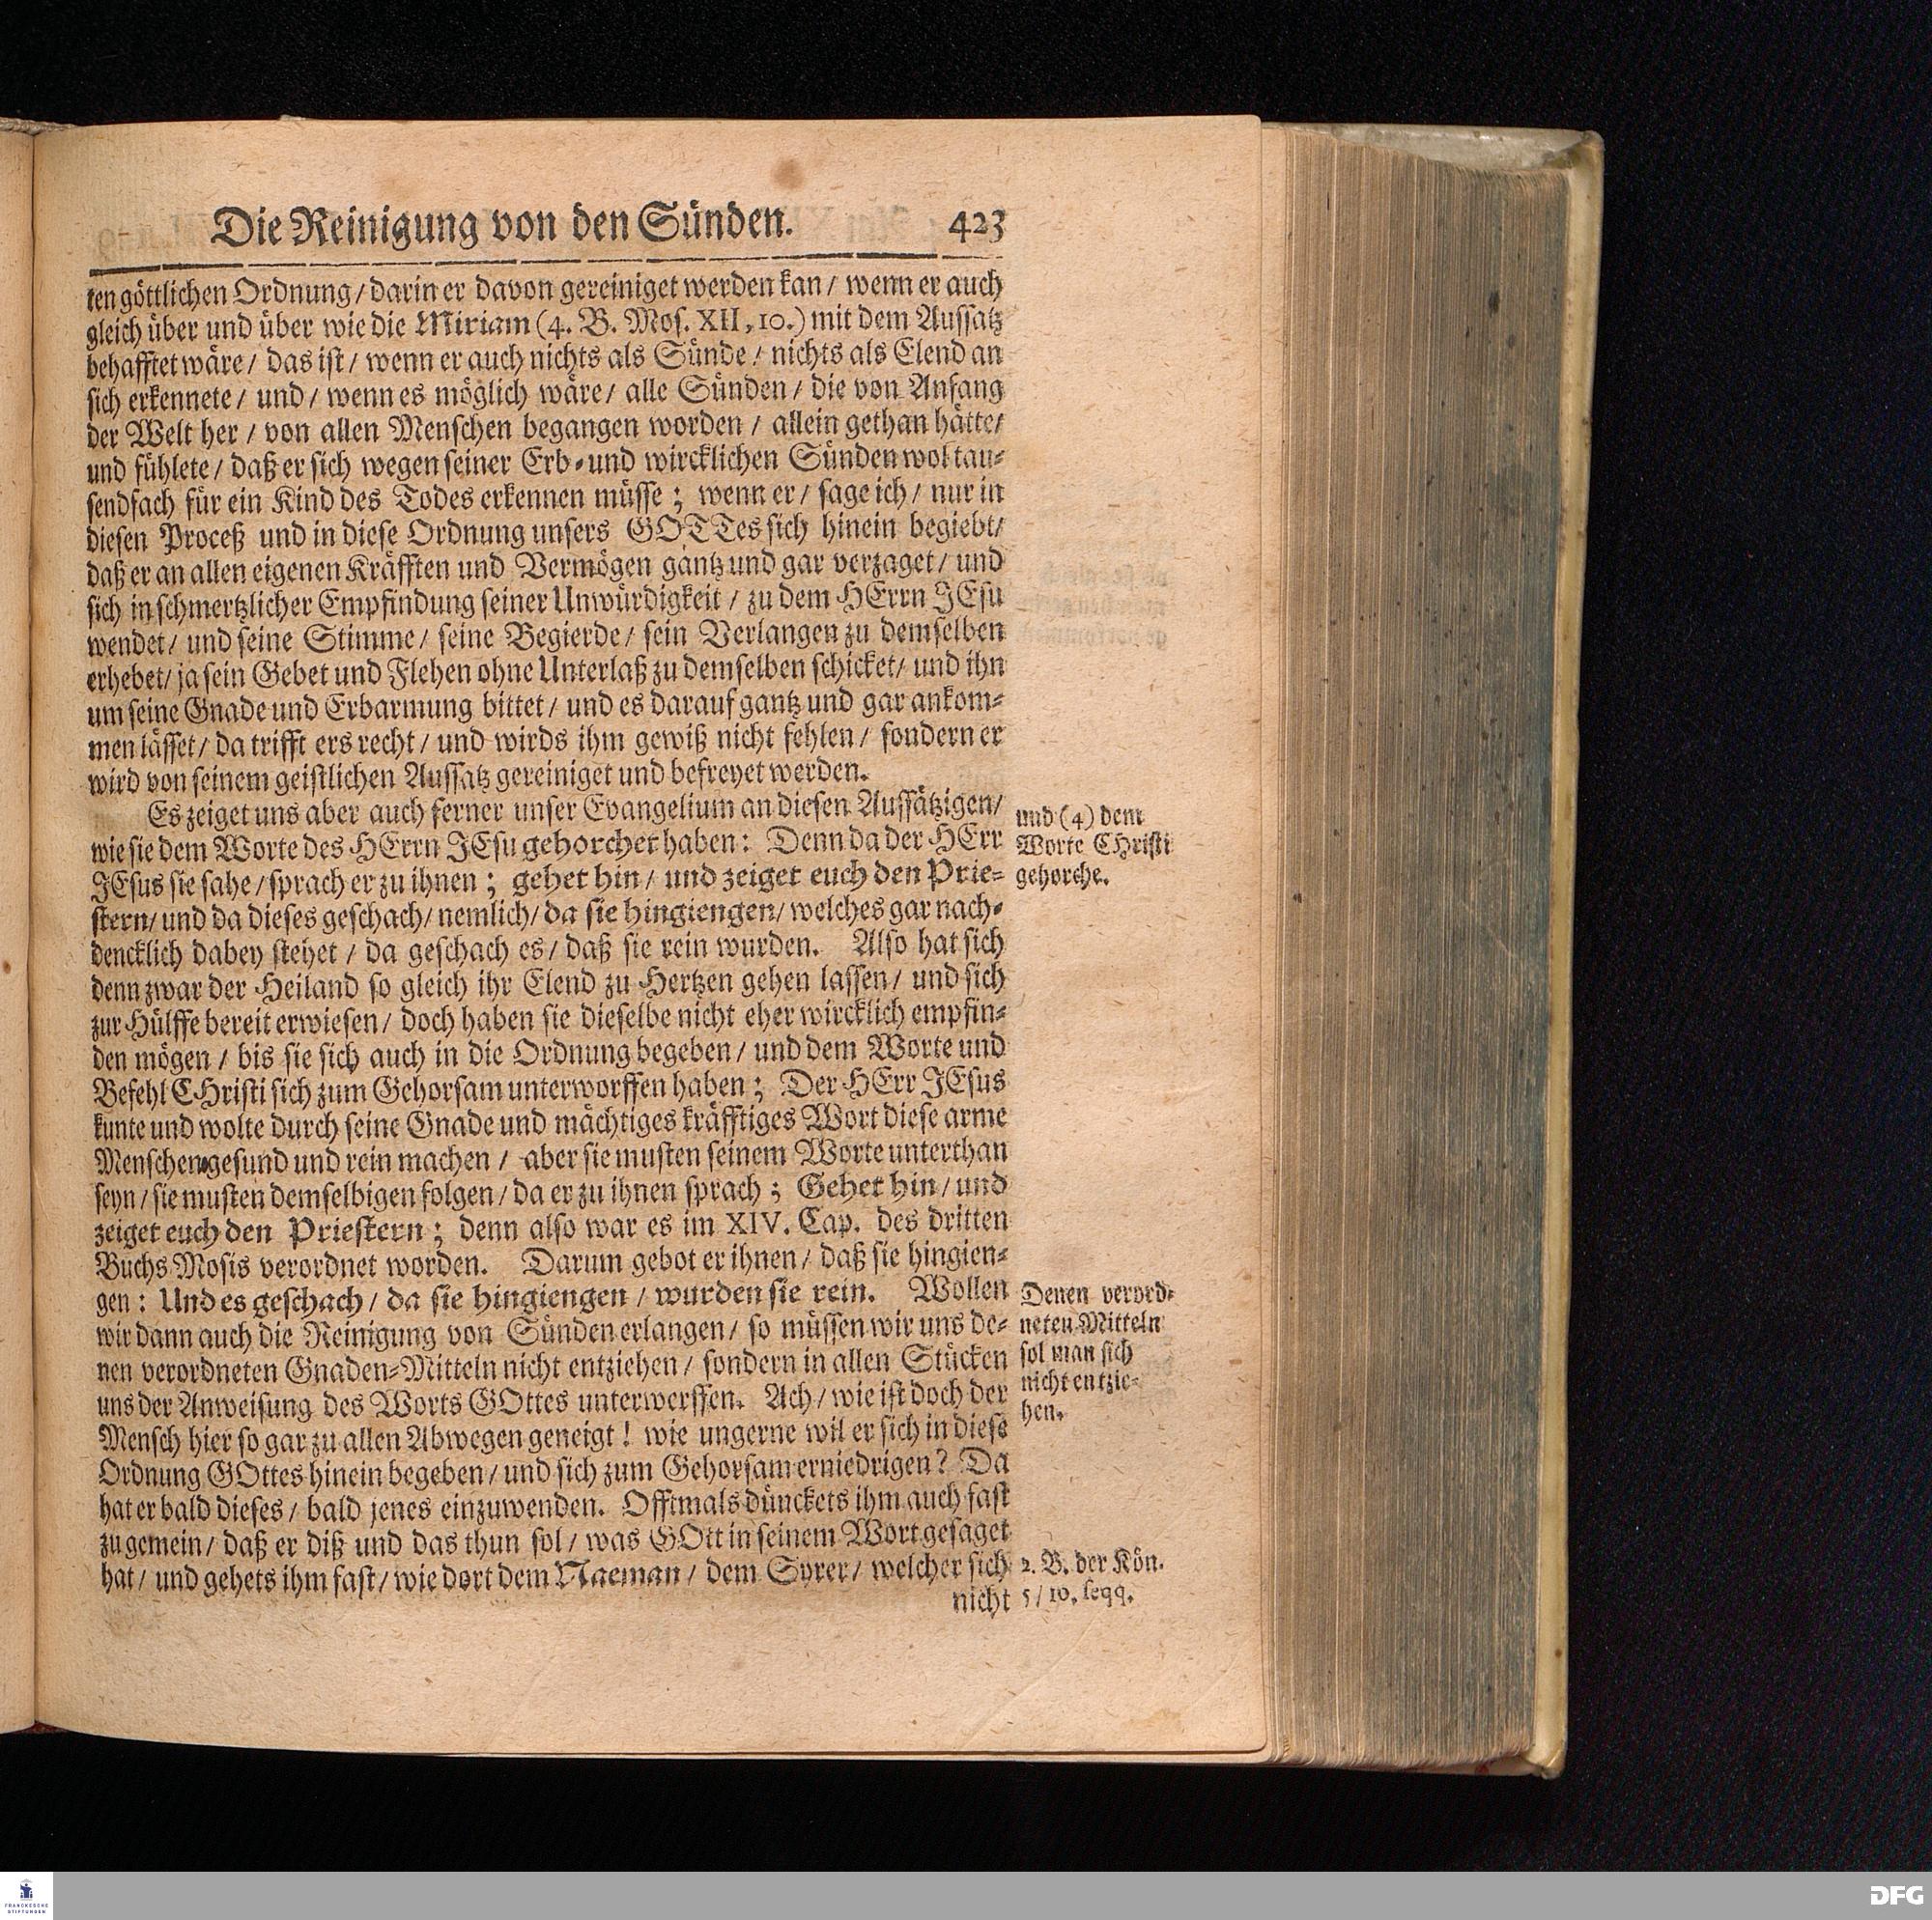 Die Reinigung von den Sünden. 423
ten göttlichen Ordnung / darin er davon gereiniget werden kan / wenn er auch
gleich über und über wie die Miriam (4. B. Mos. XII, 10.) mit dem Aussatz
behafftet wäre / das ist / wenn er auch nichts als Sünde / nichts als Elend an
sich erkennete / und / wenn es möglich wäre / alle Sünden / die von Anfang
der Welt her / von allen Menschen begangen worden / allein gethan hätte /
und fühlete / daß er sich wegen seiner Erb- und wircklichen Sünden wol tau-
sendfach für ein Kind des Todes erkennen müsse ; wenn er / sage ich / nur in
diesen Proceß und in diese Ordnung unsers GOTTes sich hinein begiebt /
daß er an allen eigenen Kräfften und Vermögen gäntz und gar verzaget / und
sich in schmertzlicher Empfindung seiner Unwürdigkeit / zu dem HErrn JEsu
wendet / und seine Stimme / seine Begierde / sein Verlangen zu demselben
erhebet / ja sein Gebet und Flehen ohne Unterlaß zu demselben schicket / und ihn
um seine Gnade und Erbarmung bittet / und es darauf gantz und gar ankom-
men lässet / da trifft ers recht / und wirds ihm gewiß nicht fehlen / sondern er
wird von seinem geistlichen Aussatz gereiniget und befreyet werden.
Es zeiget uns aber auch ferner unser Evangelium an diesen Aussätzigen /
wie sie dem Worte des HErrn JEsu gehorchet haben : Denn da der HErr
JEsus sie sahe / sprach er zu ihnen ; gehet hin / und zeiget euch den Prie-
stern / und da dieses geschach / nemlich / da sie hingiengen / welches gar nach-
dencklich dabey stehet / da geschach es / daß sie rein wurden. Also hat sich
denn zwar der Heiland so gleich ihr Elend zu Hertzen gehen lassen / und sich
zur Hülffe bereit erwiesen / doch haben sie dieselbe nicht eher wircklich empfin-
den mögen / bis sie sich auch in die Ordnung begeben / und dem Worte und
Befehl CHristi sich zum Gehorsam unterworffen haben ; Der HErr JEsus
kunte und wolte durch seine Gnade und mächtiges kräfftiges Wort diese arme
Menschen gesund und rein machen / aber sie musten seinem Worte unterthan
seyn / sie musten demselbigen folgen / da er zu ihnen sprach ; Gehet hin / und
zeiget euch den Priestern ; denn also war es im XIV. Cap. des dritten
Buchs Mosis verordnet worden. Darum gebot er ihnen / daß sie hingien-
gen : Und es geschach / da sie hingiengen / wurden sie rein. Wollen
wir dann auch die Reinigung von Sünden erlangen / so müssen wir uns de-
nen verordneten Gnaden-Mitteln nicht entziehen / sondern in allen Stücken
uns der Anweisung des Worts GOttes unterwerffen. Ach / wie ist doch der
Mensch hier so gar zu allen Abwegen geneigt ! wie ungerne wil er sich in diese
Ordnung GOttes hinein begeben / und sich zum Gehorsam erniedrigen ? Da
hat er bald dieses / bald jenes einzuwenden. Offtmals dünckets ihm auch fast
zu gemein / daß er diß und das thun sol / was GOtt in seinem Wort gesaget
hat / und gehets ihm fast / wie dort dem Naeman / dem Syrer / welcher sich
nicht
und (4) dem
Worte CHristi
gehorche.
Denen verord-
neten Mitteln
sol man sich
nicht entzie-
hen.
2. B. der Kön.
5 / 10. seqq.
FRANCKESCHE
STIFTUNGEN
DFG